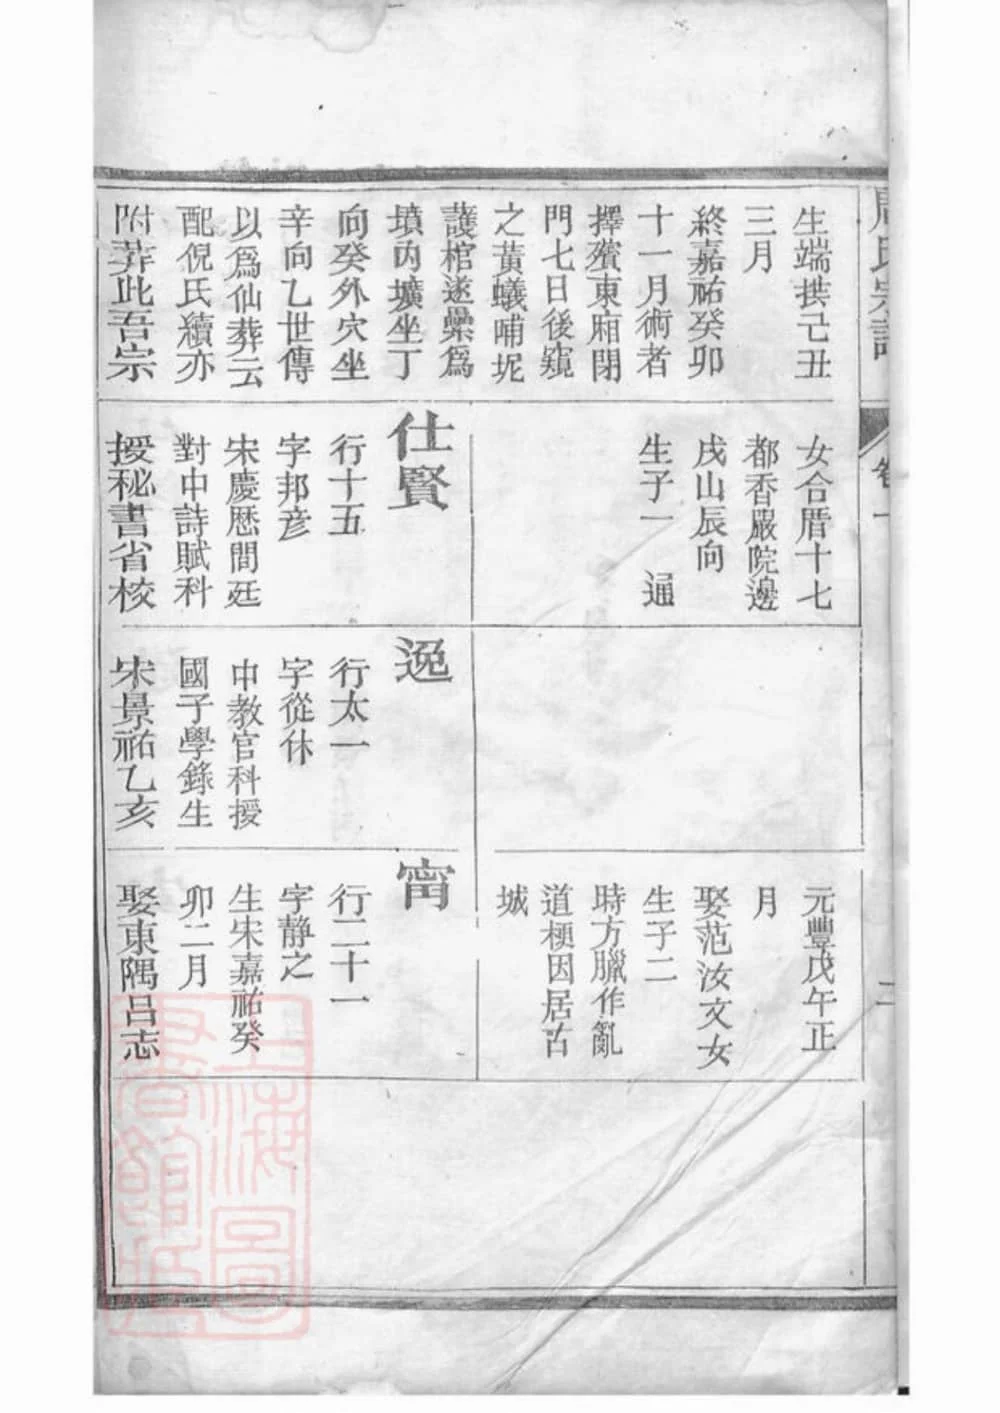 周氏宗譜
卷一
二
生端拱己丑
三月
終嘉祐癸卯
十一月術者
擇殯東廂閉
門七日後窺
之黃蟻哺坭
護棺遂櫐爲
墳內壙坐丁
向癸外穴坐
辛向乙世傳
以爲仙葬云
配倪氏續亦
附葬此吾宗
女合厝十七
都香嚴院邊
戌山辰向
生子一 通
仕賢
行十五
字邦彦
宋慶厯間廷
對中詩賦科
授秘書省校
逸
行太一
字從休
中教官科授
國子學錄生
宋景祐乙亥
元豐戊午正
月
娶范汝文女
生子二
時方臘作亂
道梗因居古
城
甯
行二十一
字靜之
生宋嘉祐癸
卯二月
娶東隅呂志
上海圖
書館藏